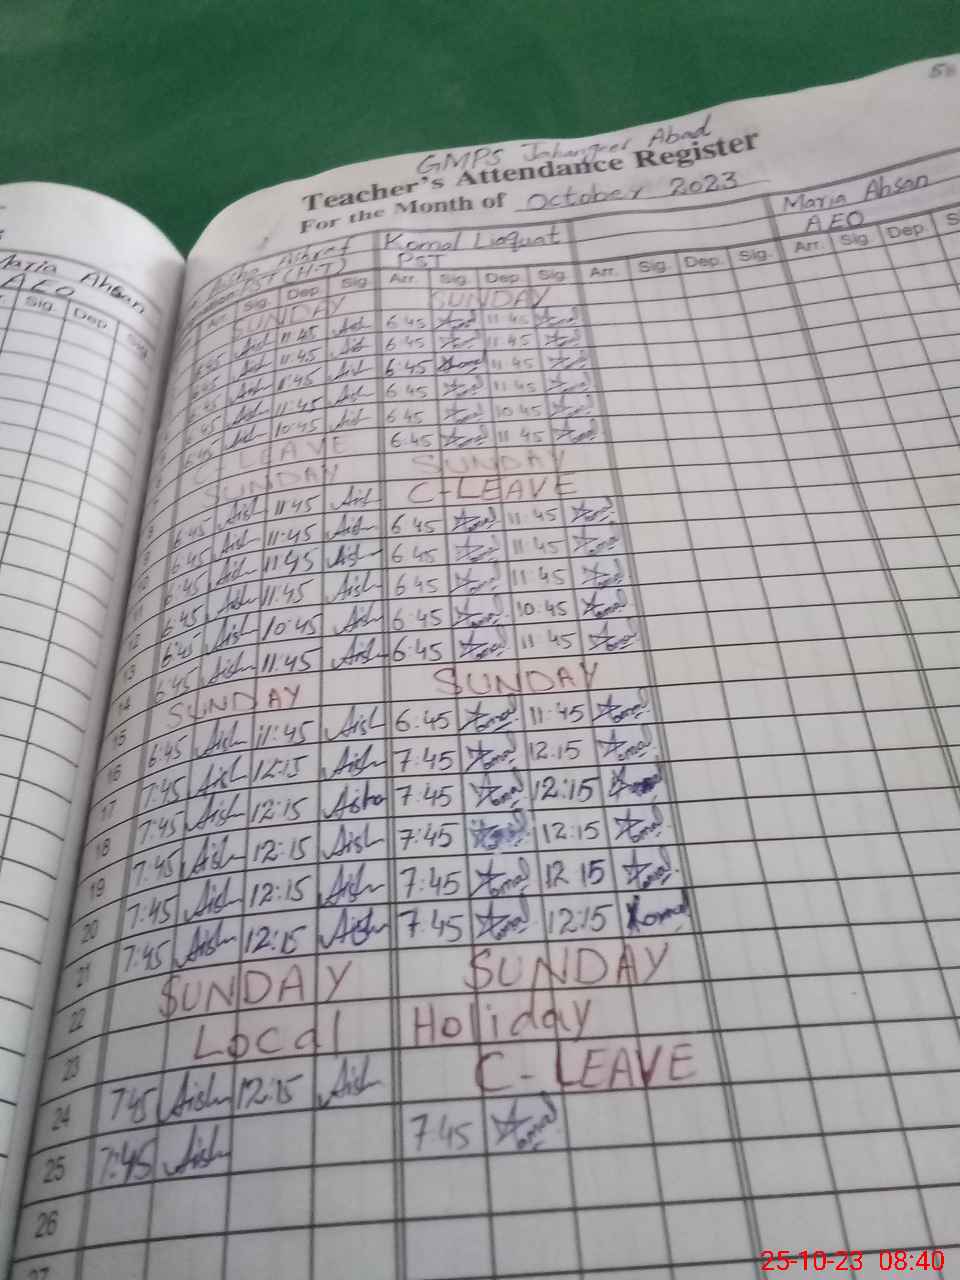 GMPS Jahangeer Abad
Teacher's Attendance Register
For the Month of October 2023
Maria Ahsan
AEO
Sig. Dep. Sig.
Ashraf Komal Liaquat Maria Ahsan
(H-T) PST AEO
Arr. Sig. Dep. Sig. Arr. Sig. Dep. Sig. Arr. Sig. Dep. Sig. Arr. Sig. Dep. S
SUNDAY SUNDAY
6:45 Aish 11:45 Aish 6:45 Komal 11:45 Komal
6:45 Aish 11:45 Aish 6:45 Komal 11:45 Komal
6:45 Aish 11:45 Aish 6:45 Komal 11:45 Komal
6:45 Aish 11:45 Aish 6:45 Komal 11:45 Komal
6:45 Aish 10:45 Aish 6:45 Komal 10:45 Komal
C-LEAVE 6:45 Komal 11:45 Komal
SUNDAY SUNDAY
8 6:45 Aish 11:45 Aish C-LEAVE
9 6:45 Aish 11:45 Aish 6:45 Komal 11:45 Komal
10 6:45 Aish 11:45 Aish 6:45 Komal 11:45 Komal
11 6:45 Aish 11:45 Aish 6:45 Komal 11:45 Komal
12 6:45 Aish 10:45 Aish 6:45 Komal 10:45 Komal
13 6:45 Aish 11:45 Aish 6:45 Komal 11:45 Komal
14 SUNDAY SUNDAY
15 6:45 Aish 11:45 Aish 6:45 Komal 11:45 Komal
16 7:45 Aish 12:15 Aish 7:45 Komal 12:15 Komal
17 7:45 Aish 12:15 Aisha 7:45 Komal 12:15 Komal
18 7:45 Aish 12:15 Aish 7:45 Komal 12:15 Komal
19 7:45 Aish 12:15 Aish 7:45 Komal 12 15 Komal
20 7:45 Aish 12:15 Aish 7:45 Komal 12:15 Komal
21 SUNDAY SUNDAY
22 Local Holiday
23 7:45 Aish 12:15 Aish C-LEAVE
24 7:45 Aish 7:45 Komal
25
26
27
25-10-23 08:40